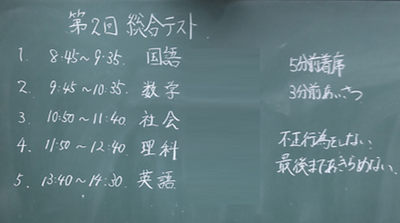 第2回 総合テスト
1. 8:45～9:35 国語
2. 9:45～10:35 数学
3. 10:50～11:40 社会
4. 11:50～12:40 理科
5. 13:40～14:30 英語
5分前着席
3分前あいさつ
不正行為をしない、
最後まであきらめない。